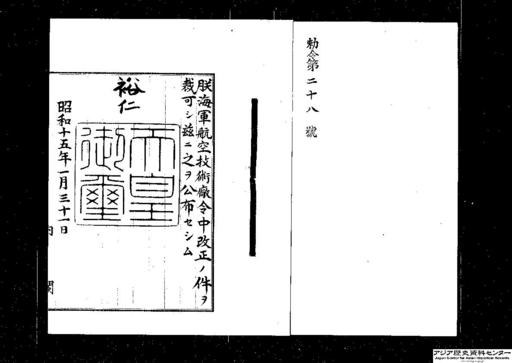 勅令第二十八號
朕海軍航空技術廠令中改正ノ件ヲ
裁可シ茲ニ之ヲ公布セシム
裕仁
天皇
御璽
昭和十五年一月三十一日
内閣
アジア歴史資料センター
Japan Center for Asian Historical Records